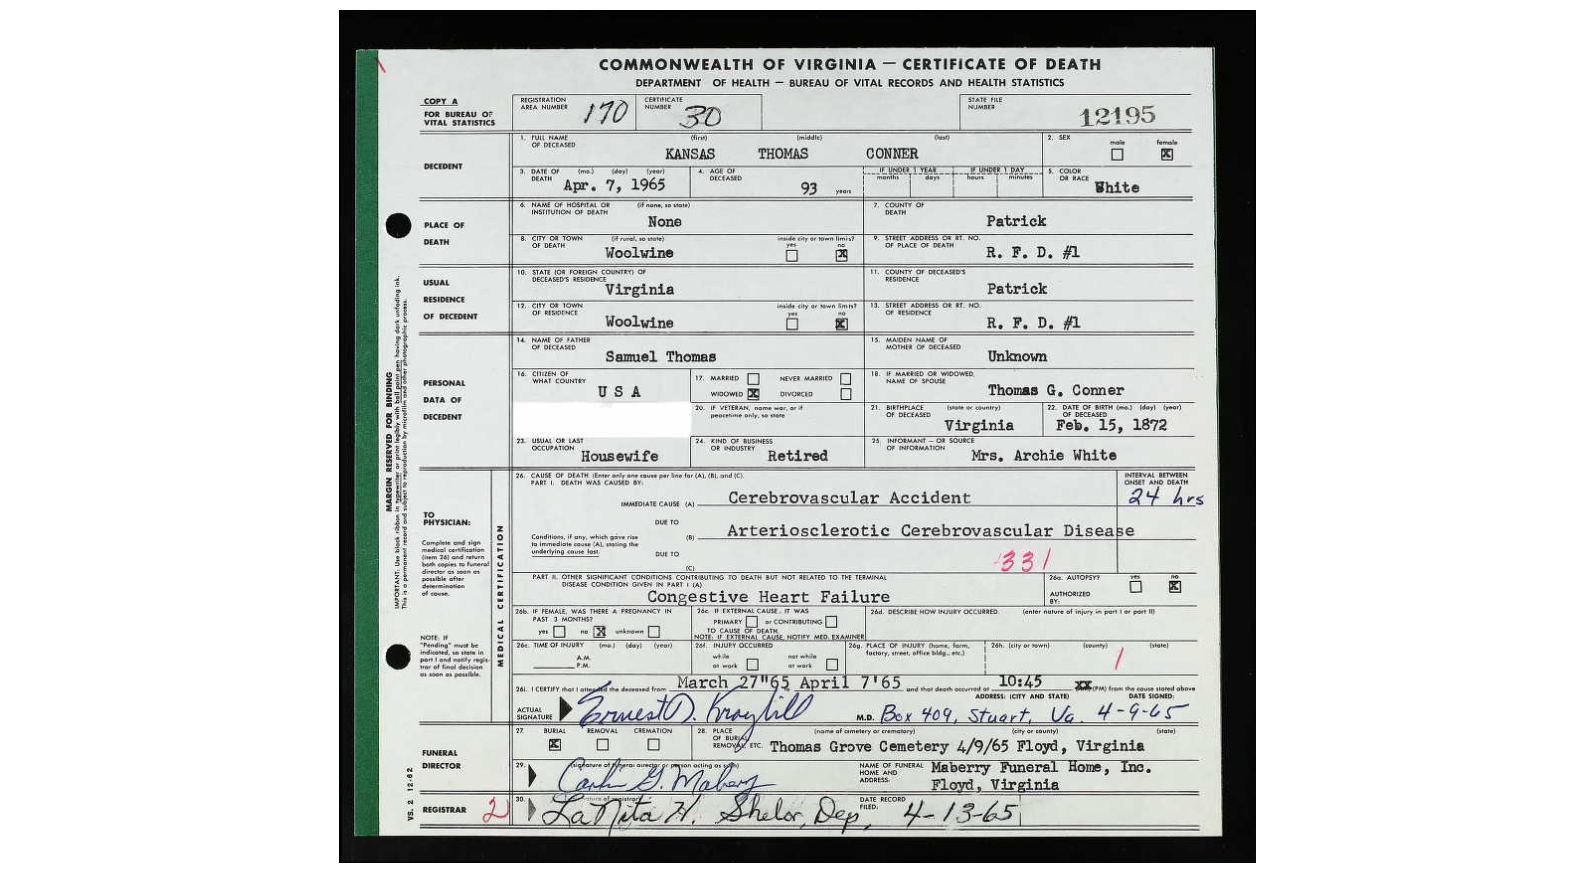 COMMONWEALTH OF VIRGINIA — CERTIFICATE OF DEATH
DEPARTMENT OF HEALTH — BUREAU OF VITAL RECORDS AND HEALTH STATISTICS
COPY A
FOR BUREAU OF
VITAL STATISTICS
REGISTRATION AREA NUMBER 170
CERTIFICATE NUMBER 30
STATE FILE NUMBER 12195
DECEDENT
1. FULL NAME OF DECEASED (first) (middle) (last)
KANSAS THOMAS CONNER
2. SEX male female X
3. DATE OF DEATH (mo.) (day) (year)
Apr. 7, 1965
4. AGE OF DECEASED 93 years
IF UNDER 1 YEAR months days
IF UNDER 1 DAY hours minutes
5. COLOR OR RACE White
PLACE OF DEATH
6. NAME OF HOSPITAL OR INSTITUTION OF DEATH (if none, so state)
None
7. COUNTY OF DEATH
Patrick
8. CITY OR TOWN OF DEATH (if rural, so state)
Woolwine
inside city or town limits? yes no X
9. STREET ADDRESS OR RT. NO. OF PLACE OF DEATH
R. F. D. #1
USUAL RESIDENCE OF DECEDENT
10. STATE (OR FOREIGN COUNTRY) OF DECEASED'S RESIDENCE
Virginia
11. COUNTY OF DECEASED'S RESIDENCE
Patrick
12. CITY OR TOWN OF RESIDENCE
Woolwine
inside city or town limits? yes no X
13. STREET ADDRESS OR RT. NO. OF RESIDENCE
R. F. D. #1
PERSONAL DATA OF DECEDENT
14. NAME OF FATHER OF DECEASED
Samuel Thomas
15. MAIDEN NAME OF MOTHER OF DECEASED
Unknown
16. CITIZEN OF WHAT COUNTRY
U S A
17. MARRIED NEVER MARRIED
WIDOWED X DIVORCED
18. IF MARRIED OR WIDOWED, NAME OF SPOUSE
Thomas G. Conner
20. IF VETERAN, name war, or if peacetime only, so state
21. BIRTHPLACE OF DECEASED (state or country)
Virginia
22. DATE OF BIRTH (mo.) (day) (year) OF DECEASED
Feb. 15, 1872
23. USUAL OR LAST OCCUPATION
Housewife
24. KIND OF BUSINESS OR INDUSTRY
Retired
25. INFORMANT — OR SOURCE OF INFORMATION
Mrs. Archie White
MARGIN RESERVED FOR BINDING
IMPORTANT: Use black ribbon in typewriter or print legibly with ball point pen having dark unfading ink.
This is a permanent record and subject to reproduction by microfilm and other photographic process.
TO PHYSICIAN:
Complete and sign
medical certification
(item 26) and return
both copies to funeral
director as soon as
possible after
determination
of cause.
NOTE: IF
"Pending" must be
indicated, so state in
part I and notify regis-
trar of final decision
as soon as possible.
MEDICAL CERTIFICATION
26. CAUSE OF DEATH (Enter only one cause per line for (A), (B), and (C).
PART I. DEATH WAS CAUSED BY:
INTERVAL BETWEEN ONSET AND DEATH
IMMEDIATE CAUSE (A) Cerebrovascular Accident 24 hrs
DUE TO
(B) Arteriosclerotic Cerebrovascular Disease
Conditions, if any, which gave rise
to immediate cause (A), stating the
underlying cause last.
DUE TO
(C)
331
PART II. OTHER SIGNIFICANT CONDITIONS CONTRIBUTING TO DEATH BUT NOT RELATED TO THE TERMINAL DISEASE CONDITION GIVEN IN PART I (A)
Congestive Heart Failure
26a. AUTOPSY? yes no X
AUTHORIZED BY:
26b. IF FEMALE, WAS THERE A PREGNANCY IN PAST 3 MONTHS?
yes no X unknown
26c. IF EXTERNAL CAUSE, IT WAS
PRIMARY or CONTRIBUTING
TO CAUSE OF DEATH.
NOTE: IF EXTERNAL CAUSE, NOTIFY MED. EXAMINER
26d. DESCRIBE HOW INJURY OCCURRED. (enter nature of injury in part I or part II)
26e. TIME OF INJURY (mo.) (day) (year)
A.M.
P.M.
26f. INJURY OCCURRED
while at work not while at work
26g. PLACE OF INJURY (home, farm, factory, street, office bldg., etc.)
26h. (city or town) (county) (state)
26i. I CERTIFY that I attended the deceased from March 27"65 April 7'65 and that death occurred at 10:45 XX (PM) from the cause stated above
ADDRESS: (CITY AND STATE) DATE SIGNED:
ACTUAL SIGNATURE Ernest D. Kraybill M.D. Box 409, Stuart, Va. 4-9-65
FUNERAL DIRECTOR
27. BURIAL X REMOVAL CREMATION
28. PLACE OF BURIAL, REMOVAL, ETC. (name of cemetery or crematory) (city or county) (state)
Thomas Grove Cemetery 4/9/65 Floyd, Virginia
29. (signature of funeral director or person acting as such)
NAME OF FUNERAL HOME AND ADDRESS:
Maberry Funeral Home, Inc.
Floyd, Virginia
REGISTRAR 2
30. LaNita H. Shelor, Dep.
DATE RECORD FILED: 4-13-65
VS. 2 12-62